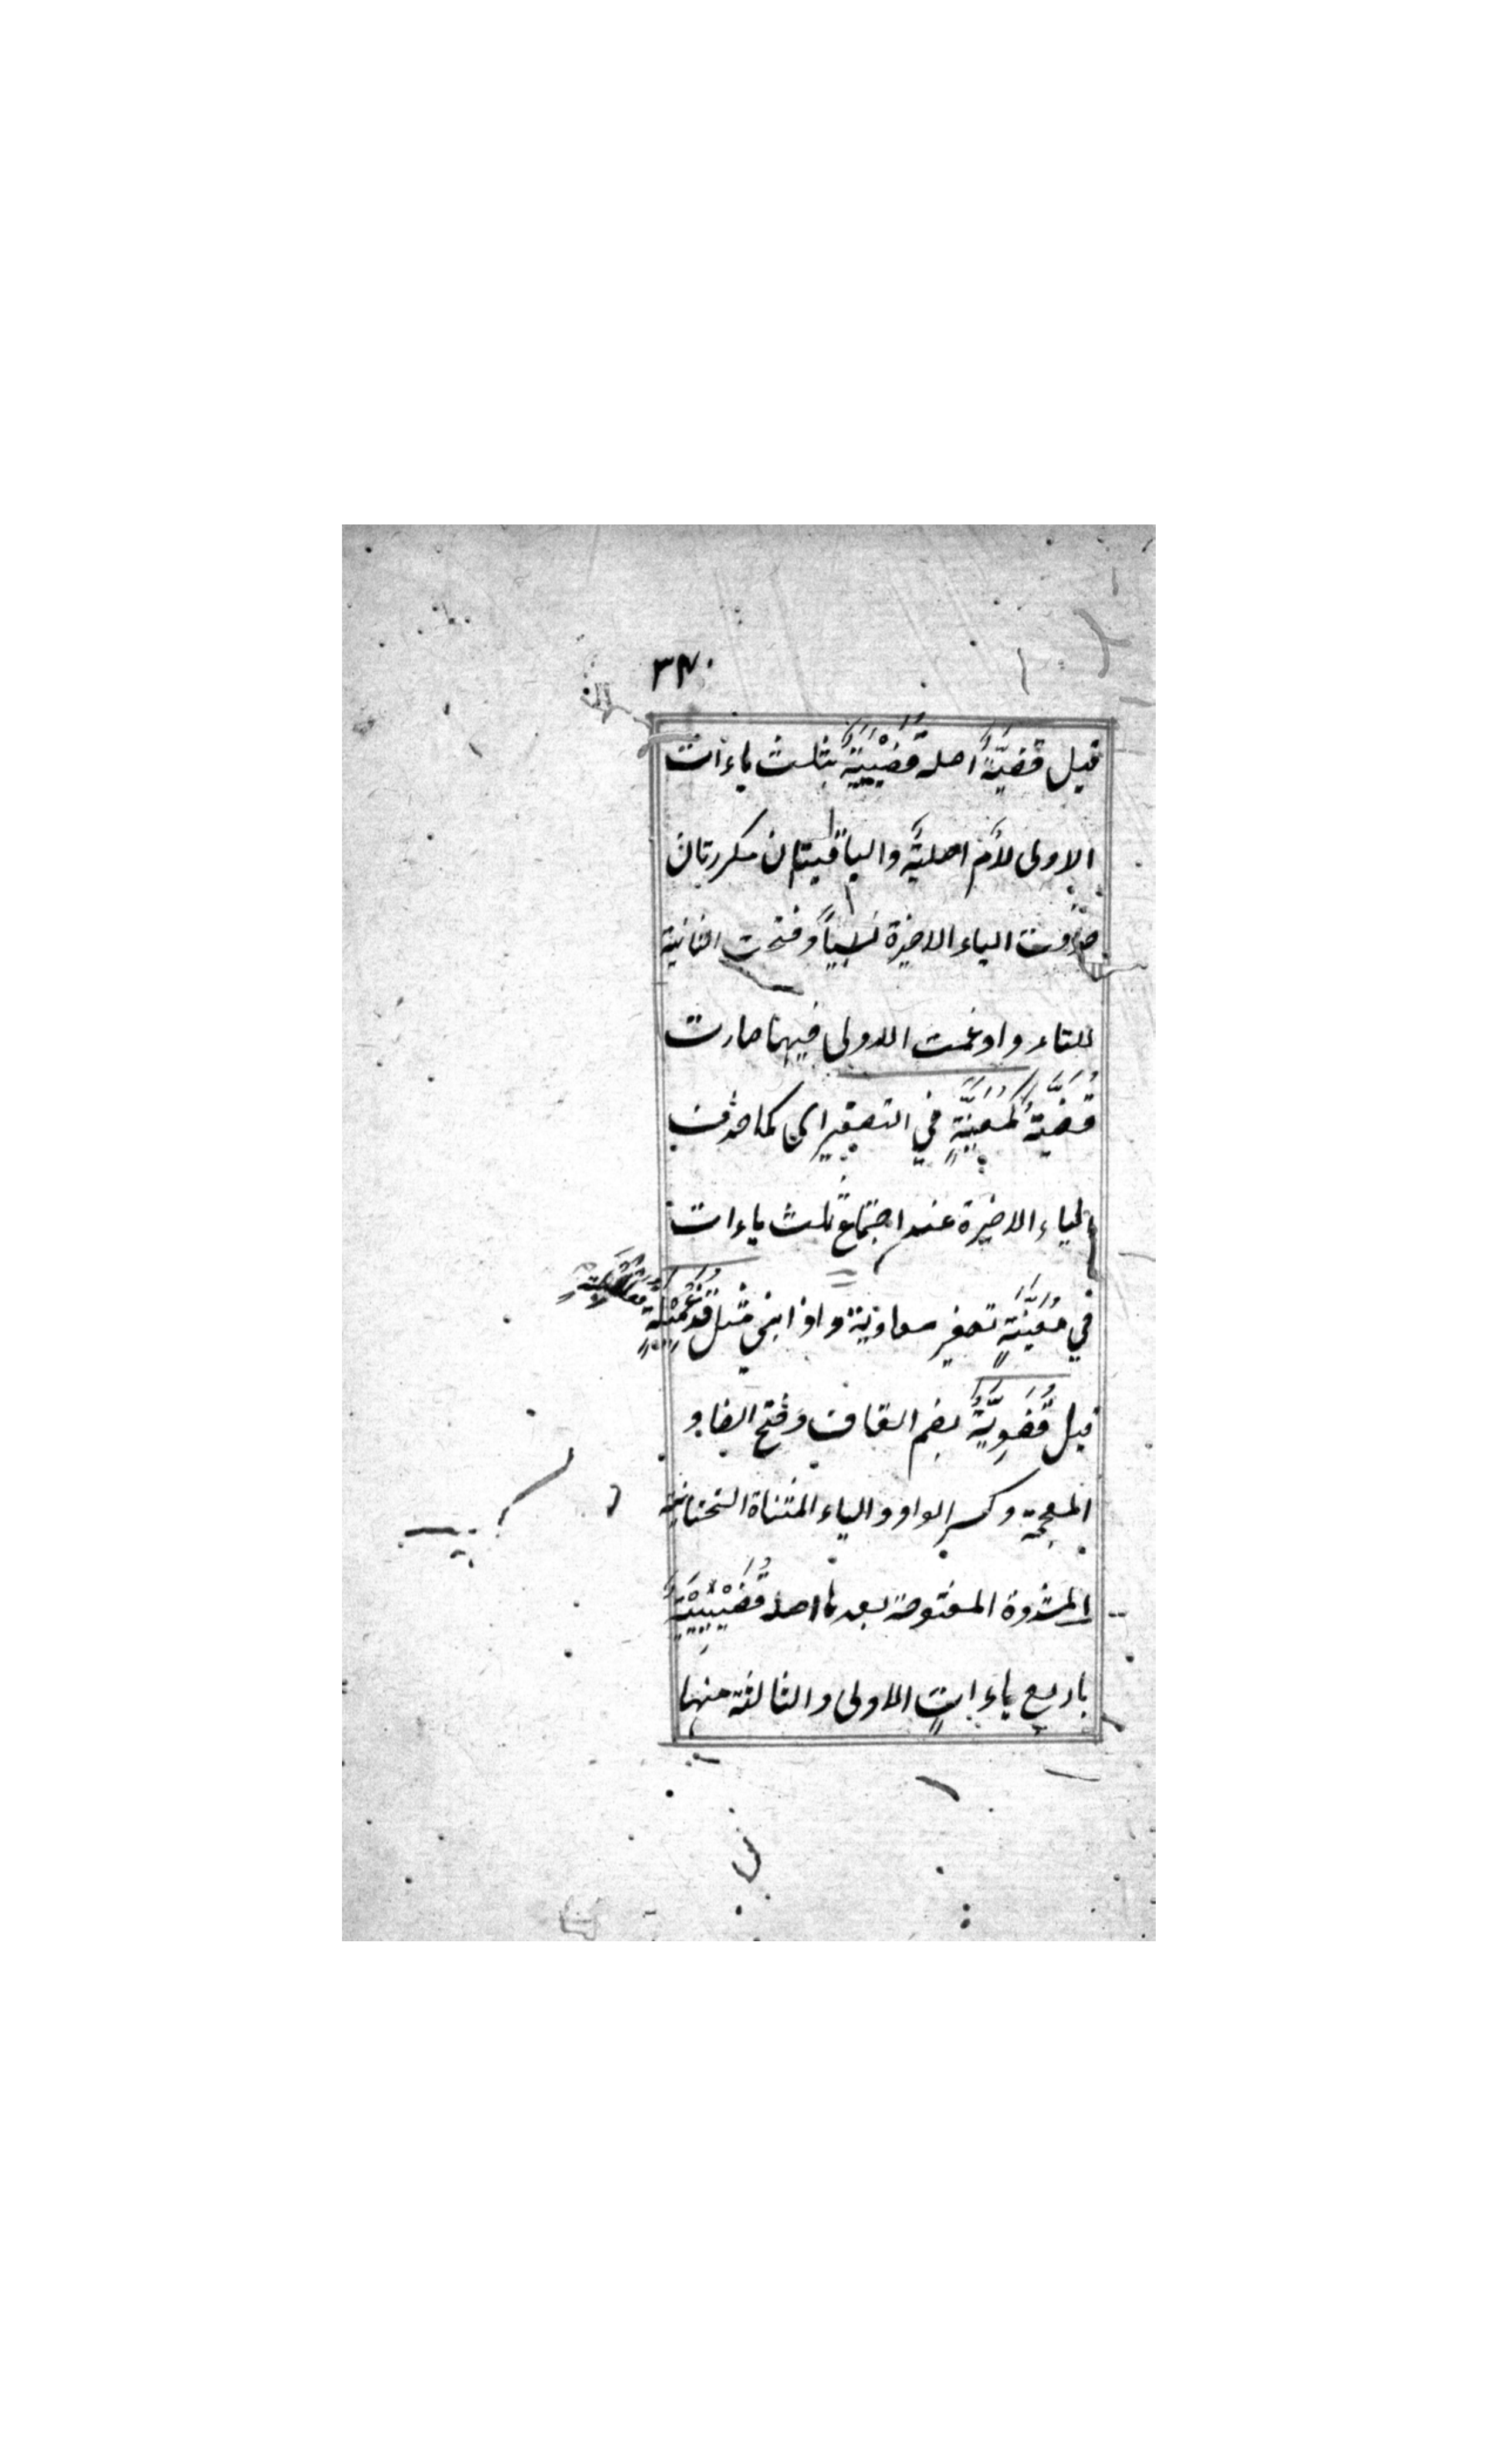 ٣٧٠
قيل قضيّةٌ اصله قُضَيْيِيَةٌ بثلث ياءات
الاولى لام اصلية والباقيتان مكررتان
حذفت الياء الاخيرة نسياً وفتحت الثانية
للتاء وادغمت الاولى فيها صارت
قُضَيَّةٌ كمُعَيَّةٍ في التصغير اى كما حذفت
الياء الاخيرة عند اجتماع ثلث ياءات
في مُعَيَّةٍ تصغير معاوية واذا بني مثل قُذَعْمِيْلَةٍ
قيل قُضَوِيَّةٌ بضم القاف وفتح الضاد
المعجمة وكسر الواو والياء المثناة التحتانية
المشددة المفتوحة بعدها اصله قُضَيْيِيْيَةٌ
باربع ياءات الاولى والثالثة منها